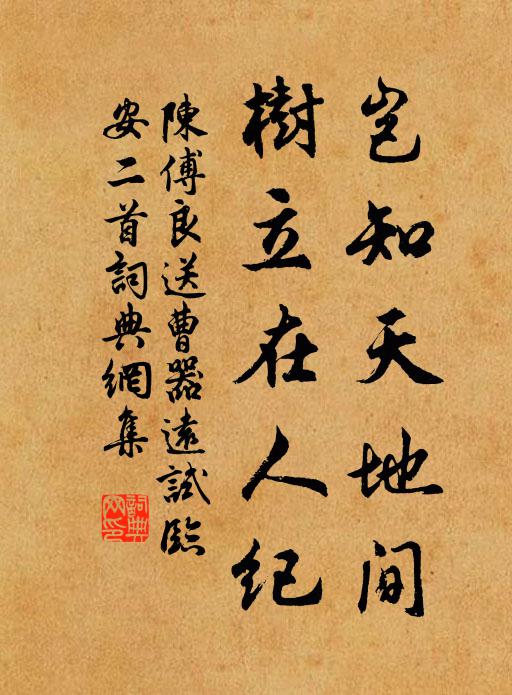 豈知天地间
樹立在人紀
陳傅良送曹器遠試臨
安二首詞典網集
詞典网印